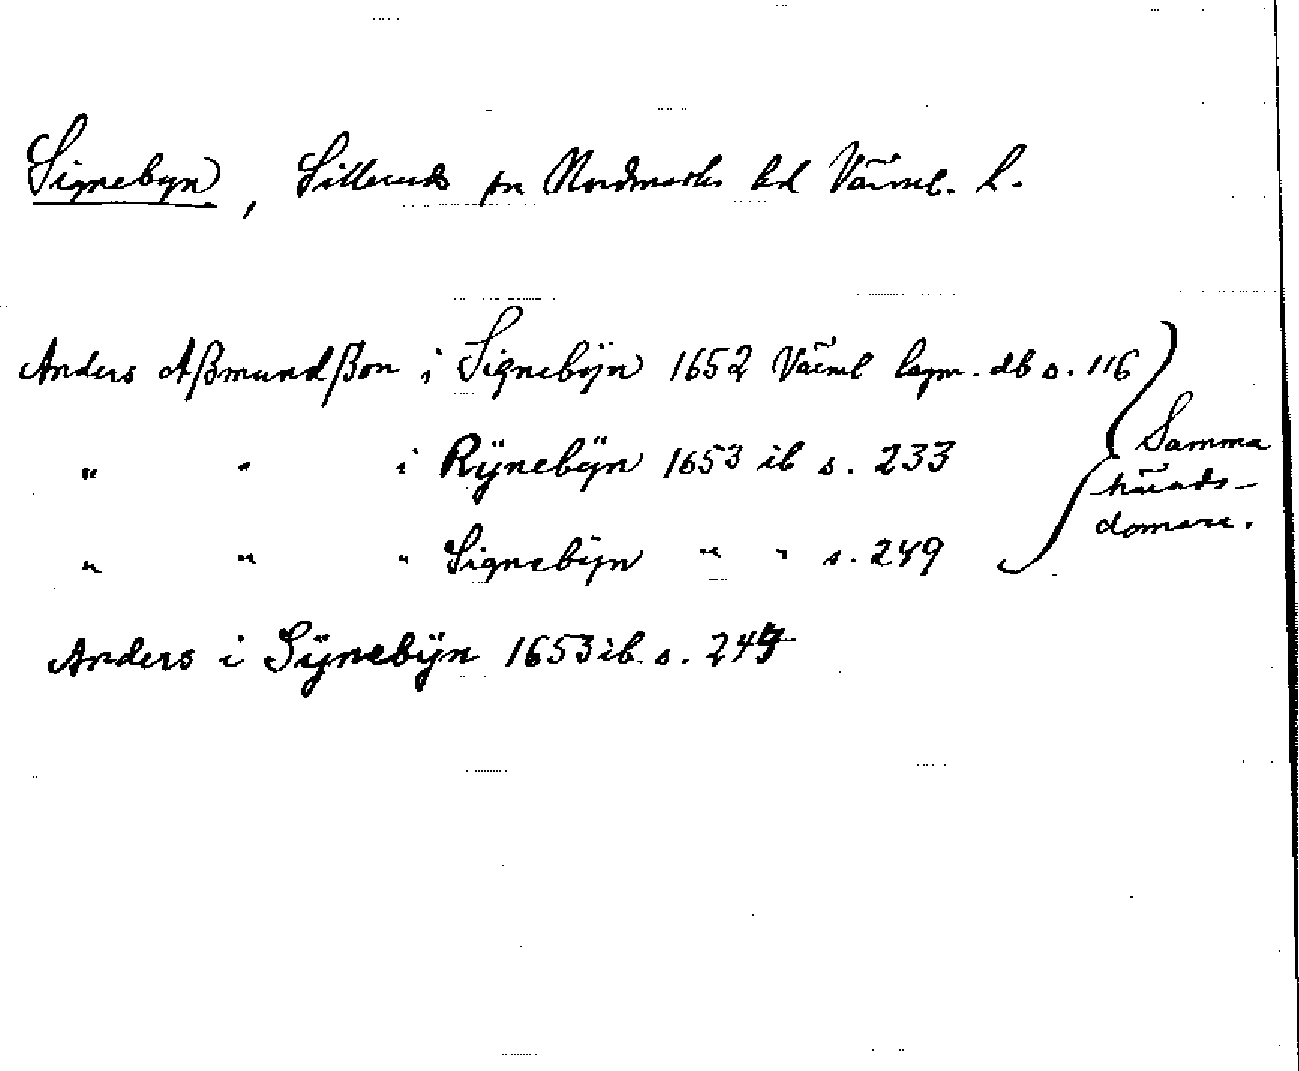 Signebyn, Silleruds sn Nordmarks hd Värml. l.
Anders Aßmundßon i Signebÿn 1652 Värml lagm. db s. 116
" " i Rÿnebÿn 1653 ib s. 233
" " " Signebÿn " " s. 249
Anders i Sÿnebÿn 1653 ib. s. 249
Samma
härads-
domare.